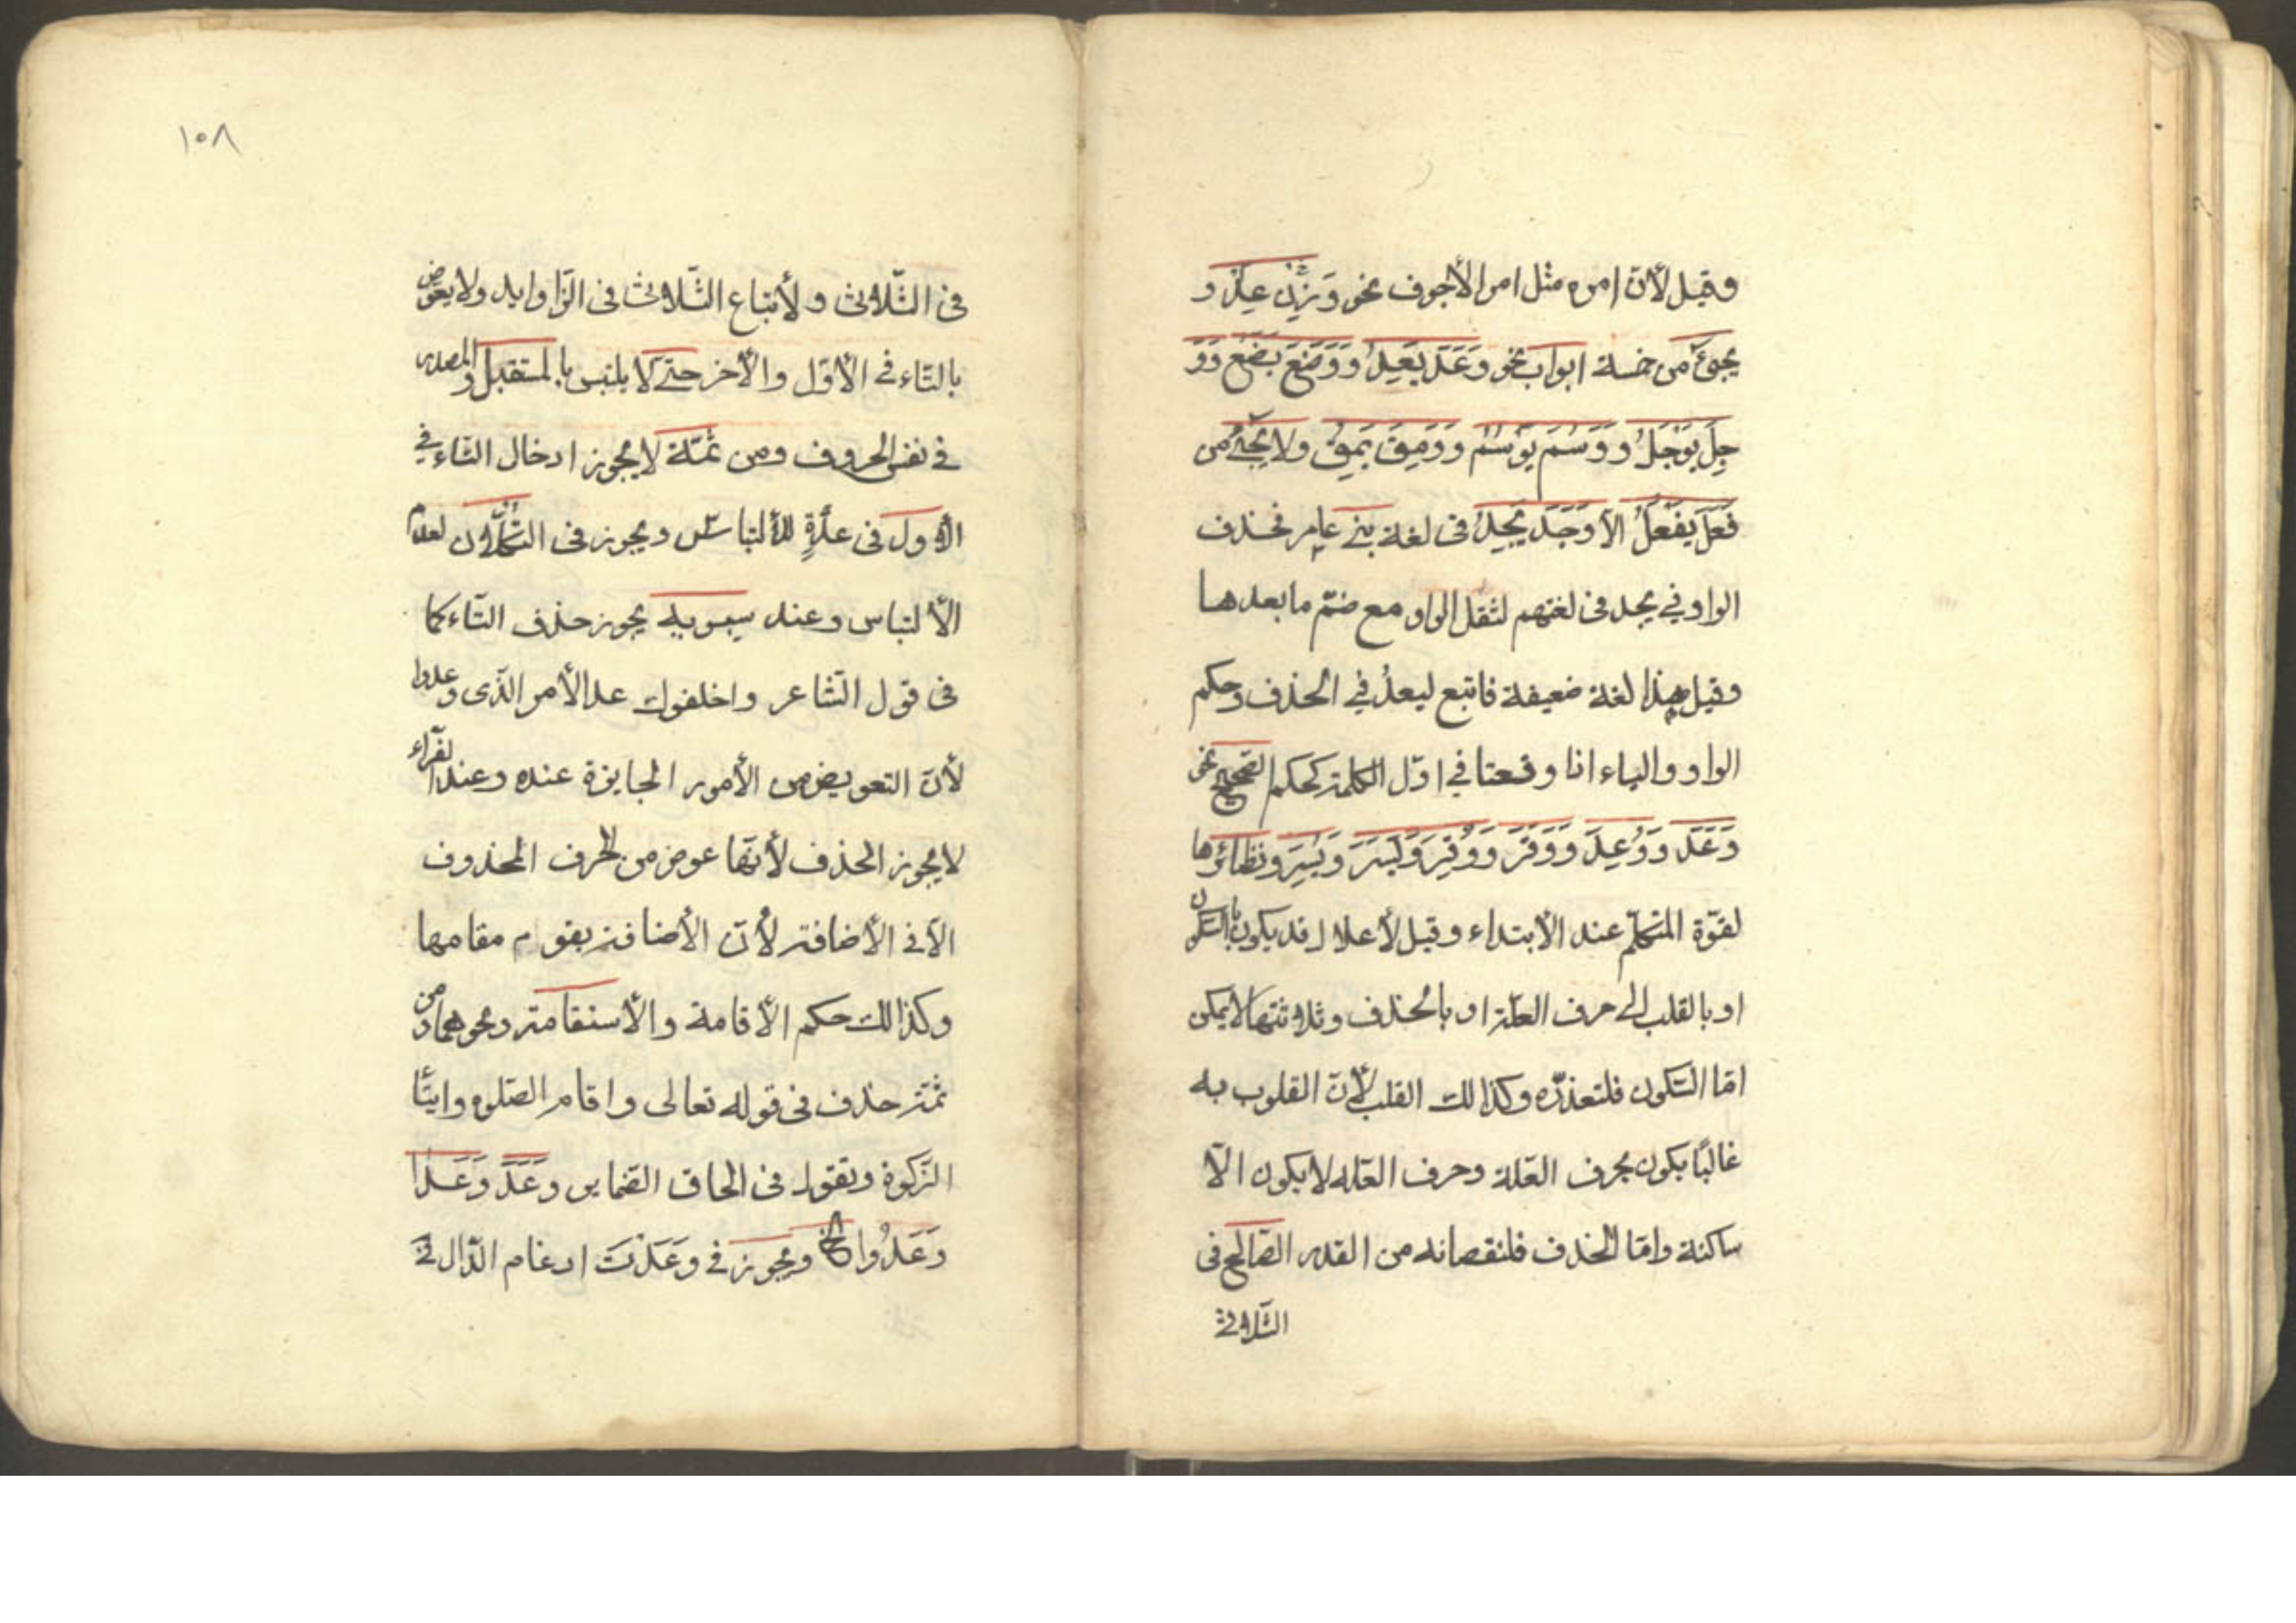 وقيل لأنّ امره مثل امر الأجوف نحو وَزِنْ عِدْ و
يجئ من خمسة ابواب نحو وَعَدَ يَعِدُ و وَضَعَ يَضَعُ وَوَ
جِلَ يَوْجَلُ و وَسُمَ يَوْسُمُ و وَمِقَ يَمِقُ ولا يجئ من
فَعَلَ يَفْعُلُ الّا وَجَدَ يَجُدُ فى لغة بنى عامر فحذف
الواو في يجد فى لغتهم لثقل الواو مع ضمّ ما بعدها
وقيل هذا لغة ضعيفة فاتبع ليعدُ في الحذف وحكم
الواو والياء اذا وقعتا في اوّل الكلمة كحكم الصّحيح نحو
وَعَدَ وَوُعِدَ وَوَقَرَ وَوُقِرَ وَيَسَرَ وَيُسِرَ ونظائرها
لقوّة المتكلّم عند الأبتداء وقيل لأعلال قد يكون بالسّكون
او بالقلب الى حرف العلّة او بالحذف وثلاثتها لا يمكن
امّا السّكون فلتعذّره وكذالك القلب لأنّ القلوب به
غالبًا يكون بحرف العلّة وحرف العلّه لا يكون الّا
ساكنة وامّا الحذف فلنقصانه من القدر الصّالح فى
الثّلاثى
١٠٨
فى الثّلاثى ولأتباع الثّلاثى فى الزّاوايد ولا يعوّض
بالتّاء في الأوّل والأخر حتى لا يلتبس بالمستقبل والمصدر
في نفس الحروف ومن ثمّة لا يجوز ادخال التّاء في
الأول فى عدّةٍ للألتباس ويجوز فى التُّكلان لعدم
الألتباس وعند سيبويه يجوز حذف التّاء كما
فى قول الشّاعر واخلفوك عد الأمر الّذى وعدوا
لأنّ التعويض من الأمور الجايزة عنده وعند الفرّاء
لا يجوز الحذف لأنّها عوض من الحرف المحذوف
الّا فى الأضافة لأنّ الأضافة يقوم مقامها
وكذالك حكم الأقامة والأستقامة ونحوهما ومن
ثمّة حذف فى قوله تعالى واقام الصّلوة وايتا
الزّكوة وتقول فى الحاق الضّماير وَعَدَ وَعَدَا
وَعَدُوا الخ ويجوز في وَعَدْتَ ادغام الدّال فى